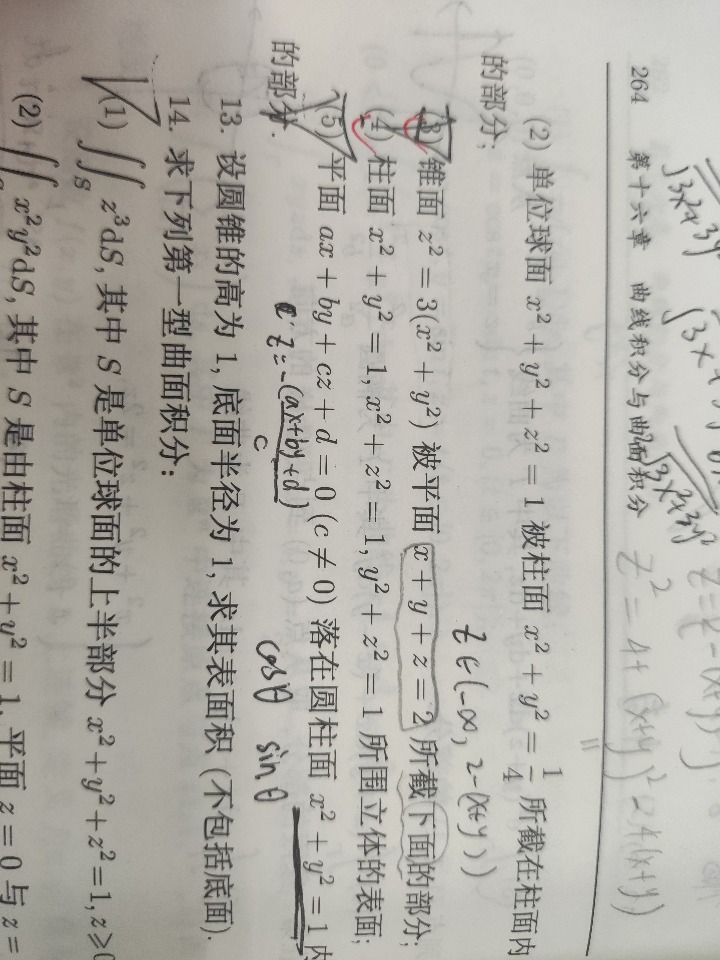 264 第十六章 曲线积分与曲面积分
(2) 单位球面 x² + y² + z² = 1 被柱面 x² + y² = 1/4 所截在柱面内
的部分;
z∈(-∞, 2-(x+y))
(3) 锥面 z² = 3(x² + y²) 被平面 x + y + z = 2 所截下面的部分;
(4) 柱面 x² + y² = 1, x² + z² = 1, y² + z² = 1 所围立体的表面;
(5) 平面 ax + by + cz + d = 0 (c ≠ 0) 落在圆柱面 x² + y² = 1 内
的部分.
z = -(ax+by+d)/c
cosθ sinθ
13. 设圆锥的高为 1, 底面半径为 1, 求其表面积 (不包括底面).
14. 求下列第一型曲面积分:
(1) ∬_S z³dS, 其中 S 是单位球面的上半部分 x² + y² + z² = 1, z ≥ 0
(2) ∬ x²y²dS, 其中 S 是由柱面 x² + y² = 1, 平面 z = 0 与 z =
z² = 4 + (x+y)² - 4(x+y)